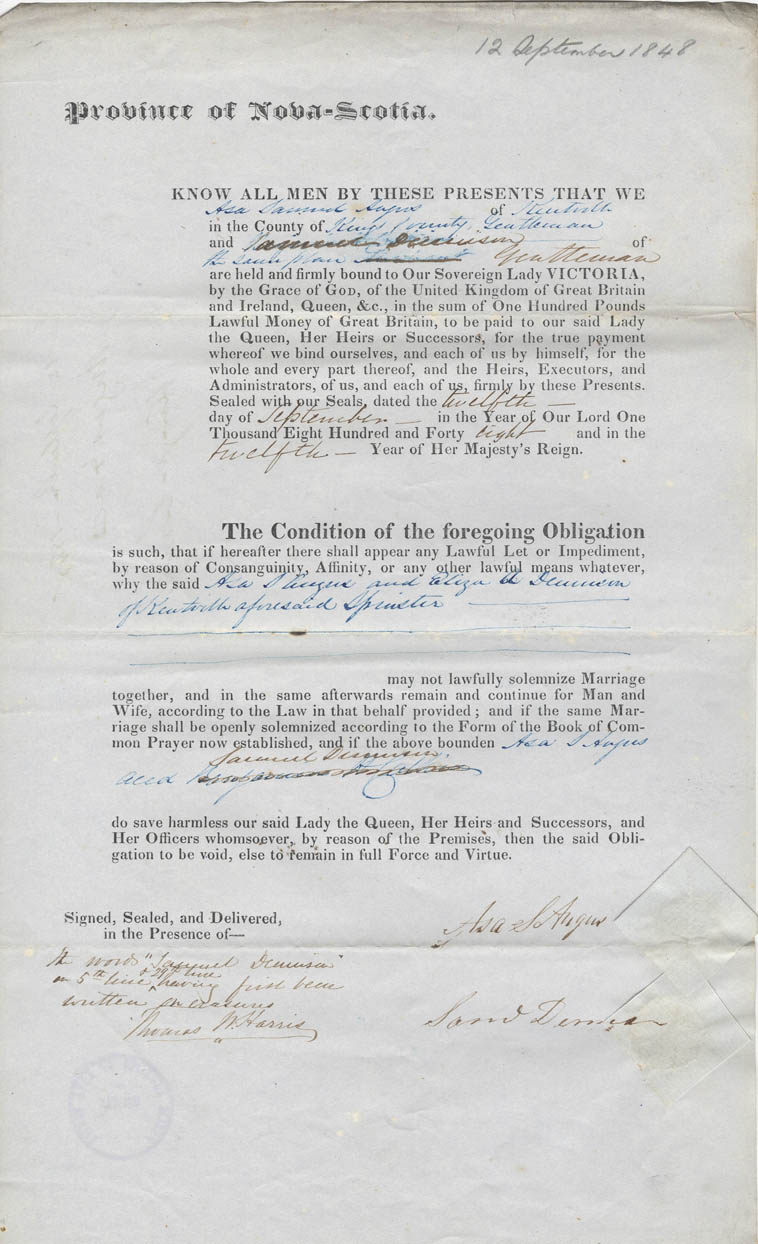 12 September 1848
Province of Nova-Scotia.
KNOW ALL MEN BY THESE PRESENTS THAT WE
Asa Samuel Angus of Kentville
in the County of Kings County, Gentleman
and Samuel Dennison of
the same place Gentleman
are held and firmly bound to Our Sovereign Lady VICTORIA,
by the Grace of GOD, of the United Kingdom of Great Britain
and Ireland, Queen, &c., in the sum of One Hundred Pounds
Lawful Money of Great Britain, to be paid to our said Lady
the Queen, Her Heirs or Successors, for the true payment
whereof we bind ourselves, and each of us by himself, for the
whole and every part thereof, and the Heirs, Executors, and
Administrators, of us, and each of us, firmly by these Presents.
Sealed with our Seals, dated the twelfth —
day of September — in the Year of Our Lord One
Thousand Eight Hundred and Forty eight and in the
twelfth — Year of Her Majesty's Reign.
The Condition of the foregoing Obligation
is such, that if hereafter there shall appear any Lawful Let or Impediment,
by reason of Consanguinity, Affinity, or any other lawful means whatever,
why the said Asa S Angus and Eliza Dennison
of Kentville aforesaid Spinster
may not lawfully solemnize Marriage
together, and in the same afterwards remain and continue for Man and
Wife, according to the Law in that behalf provided; and if the same Mar-
riage shall be openly solemnized according to the Form of the Book of Com-
mon Prayer now established, and if the above bounden Asa S Angus
Samuel Dennison
and
do save harmless our said Lady the Queen, Her Heirs and Successors, and
Her Officers whomsoever, by reason of the Premises, then the said Obli-
gation to be void, else to remain in full Force and Virtue.
Signed, Sealed, and Delivered,
in the Presence of—
Asa S Angus
the words "Samuel Dennison"
on 5th line & 29th line having first been
written on erasures
Thomas W Harris
Saml Denison